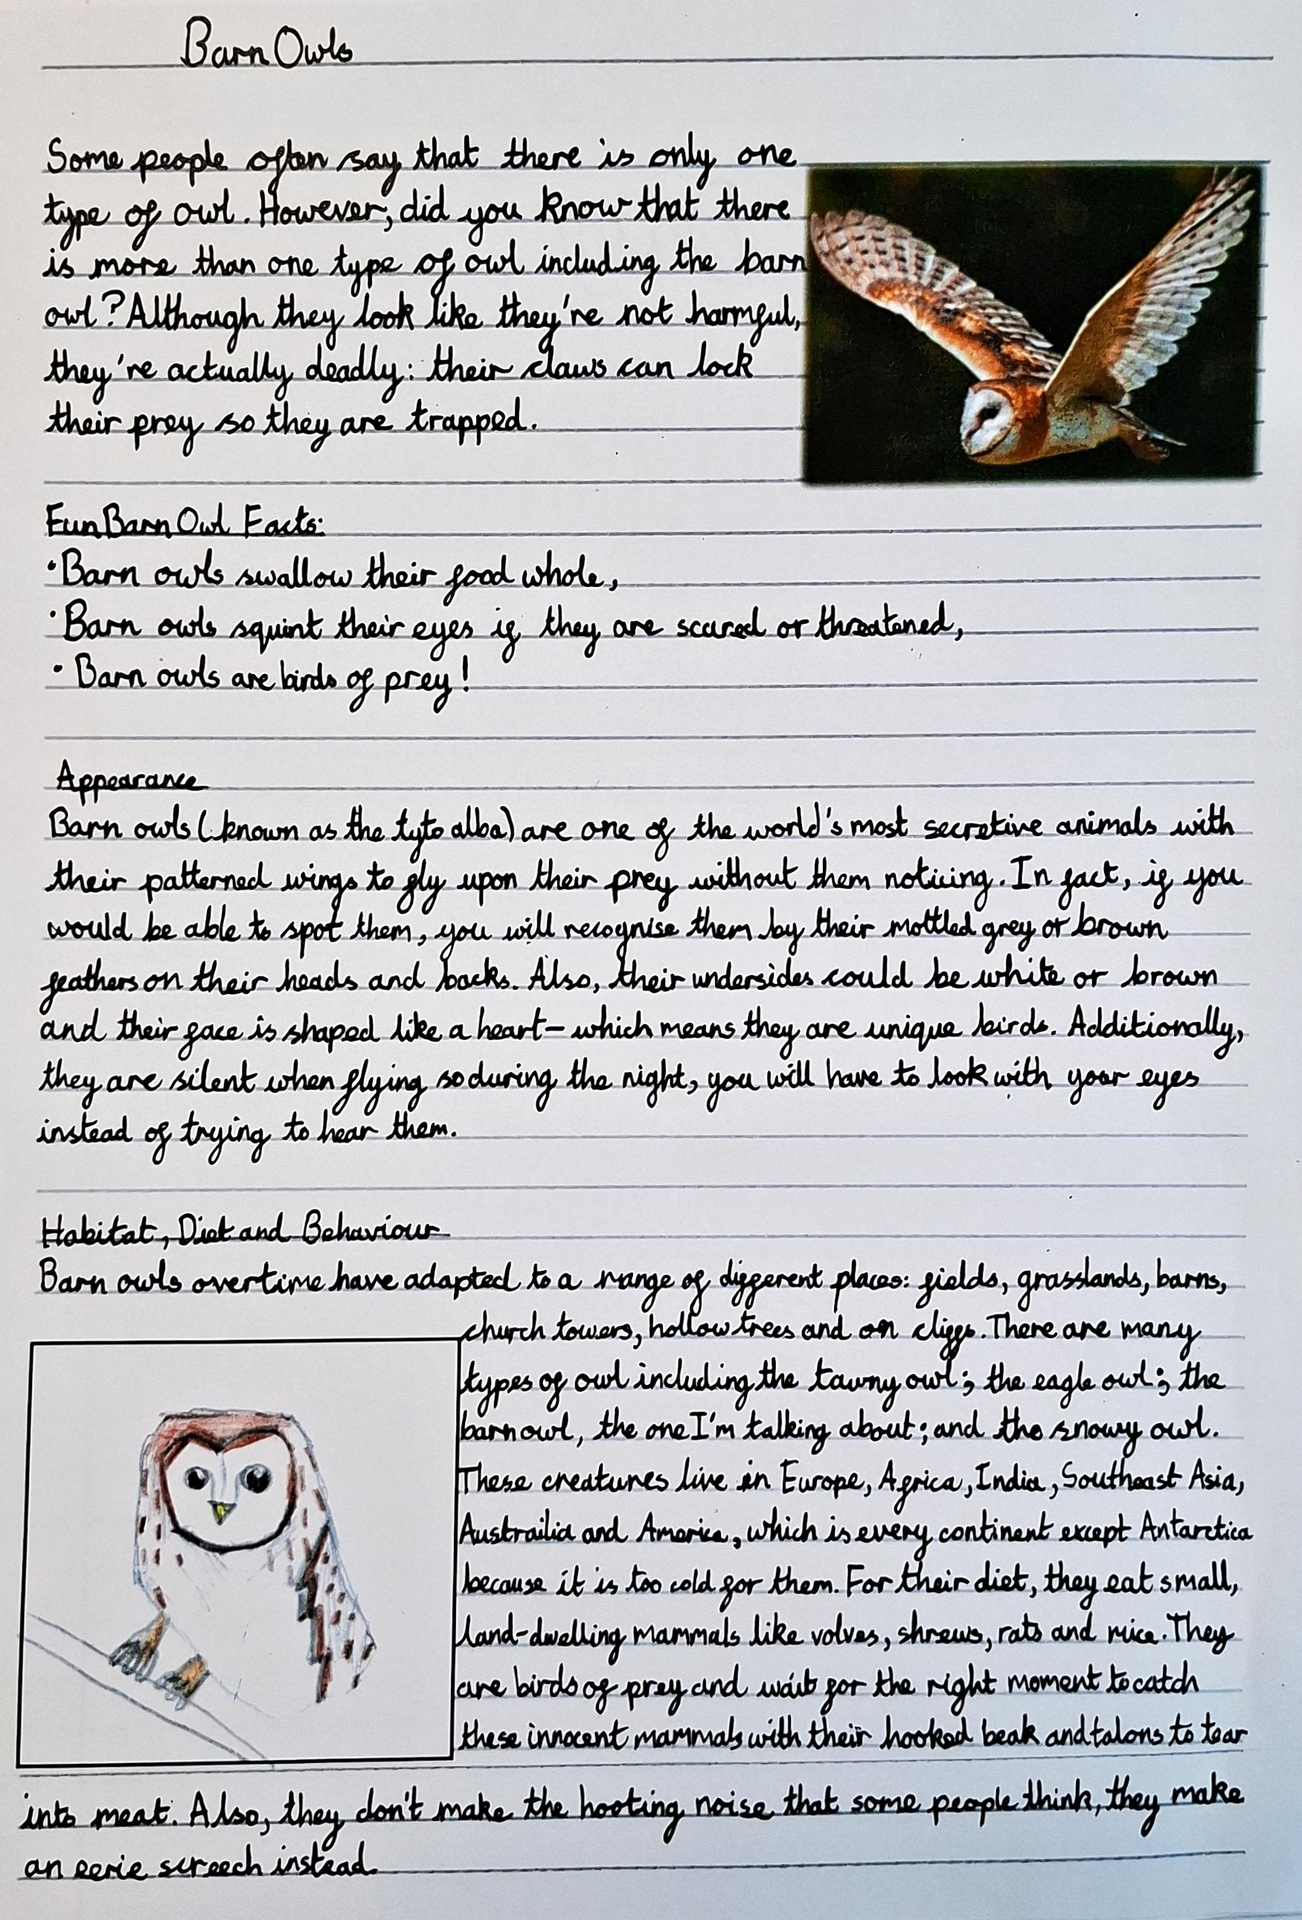 Barn Owls
Some people often say that there is only one
type of owl. However, did you know that there
is more than one type of owl including the barn
owl? Although they look like they're not harmful,
they're actually deadly: their claws can lock
their prey so they are trapped.
Fun Barn Owl Facts:
• Barn owls swallow their food whole,
• Barn owls squint their eyes if they are scared or threatened,
• Barn owls are birds of prey!
Appearance
Barn owls (known as the tyto alba) are one of the world's most secretive animals with
their patterned wings to fly upon their prey without them noticing. In fact, if you
would be able to spot them, you will recognise them by their mottled grey or brown
feathers on their heads and backs. Also, their undersides could be white or brown
and their face is shaped like a heart – which means they are unique birds. Additionally,
they are silent when flying so during the night, you will have to look with your eyes
instead of trying to hear them.
Habitat, Diet and Behaviour
Barn owls overtime have adapted to a range of different places: fields, grasslands, barns,
church towers, hollow trees and on cliffs. There are many
types of owl including the tawny owl; the eagle owl; the
barn owl, the one I'm talking about; and the snowy owl.
These creatures live in Europe, Africa, India, Southeast Asia,
Austrailia and America, which is every continent except Antarctica
because it is too cold for them. For their diet, they eat small,
land-dwelling mammals like volves, shrews, rats and mice. They
are birds of prey and wait for the right moment to catch
these innocent mammals with their hooked beak and talons to tear
into meat. Also, they don't make the hooting noise that some people think, they make
an eerie screech instead.